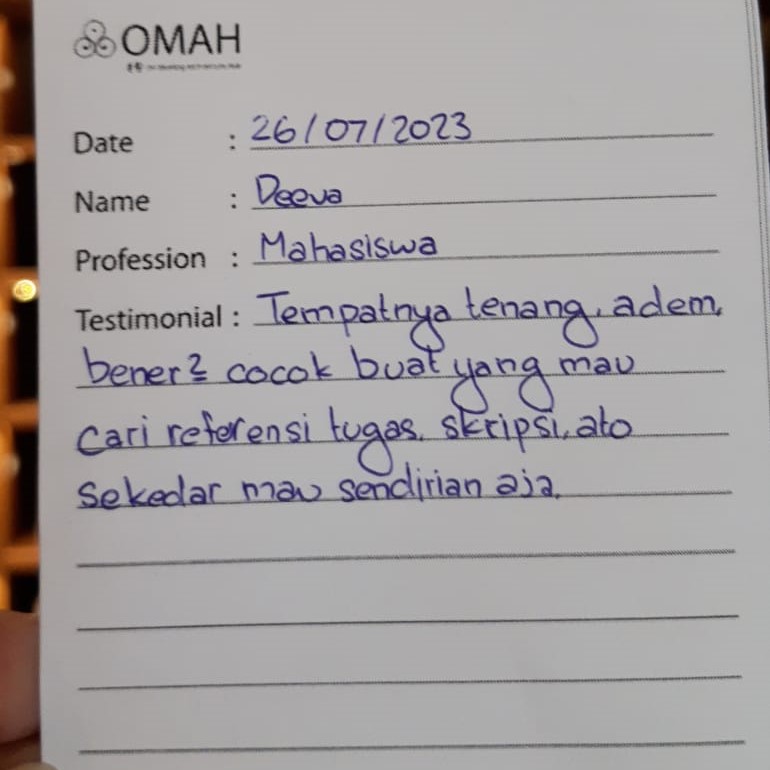 OMAH
Date : 26/07/2023
Name : Deeva
Profession : Mahasiswa
Testimonial : Tempatnya tenang, adem,
bener2 cocok buat yang mau
cari referensi tugas, skripsi, ato
sekedar mau sendirian aja.